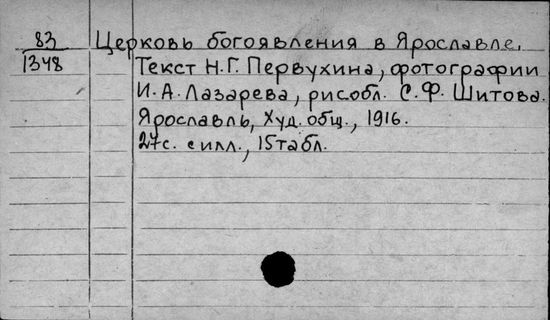 83 Церковь богоявления в Ярославле.
1348 Текст Н.Г. Первухина, фотографии
И.А. Лазарева, рис.обл. С.Ф. Шитова.
Ярославль, Худ. общ., 1916.
27с. с илл., 15 табл.